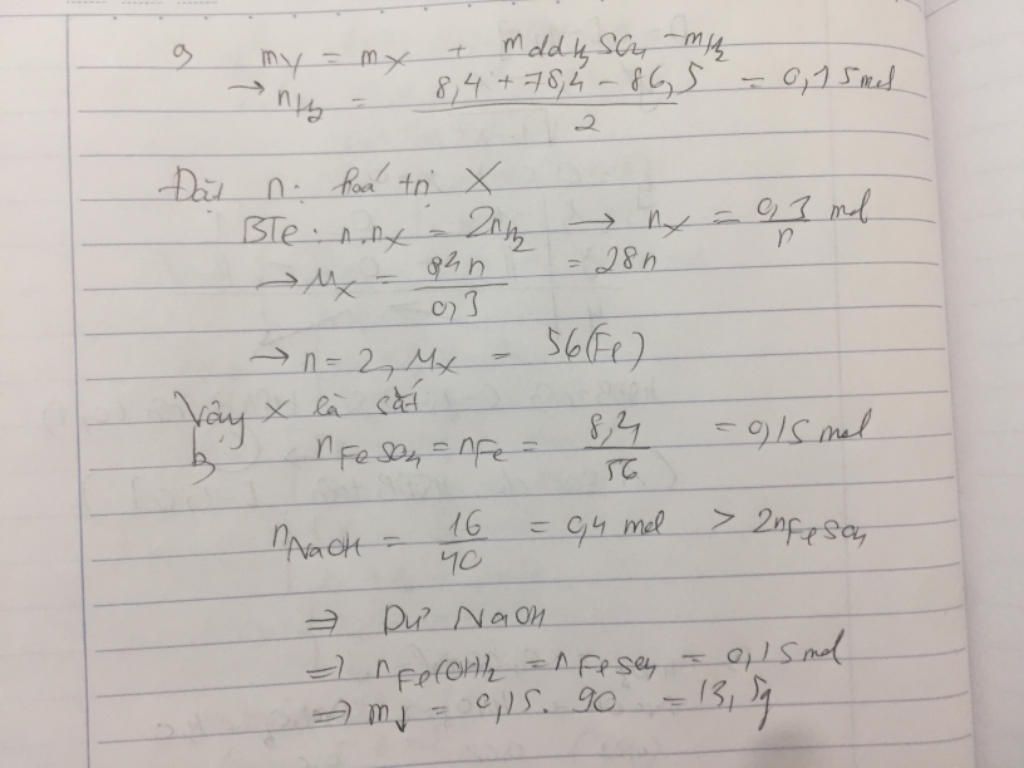 a, mY = mX + mddH2SO4 - mH2
→ nH2 = (8,4 + 78,4 - 86,5)/2 = 0,15 mol
Đặt n: hoá trị X
BTe: n.nX = 2nH2 → nX = 0,3/n mol
→ MX = 8,4n/0,3 = 28n
→ n = 2, MX = 56 (Fe)
Vậy X là sắt
b, nFeSO4 = nFe = 8,4/56 = 0,15 mol
nNaOH = 16/40 = 0,4 mol > 2nFeSO4
⇒ Dư NaOH
⇒ nFe(OH)2 = nFeSO4 = 0,15 mol
⇒ m↓ = 0,15. 90 = 13,5g